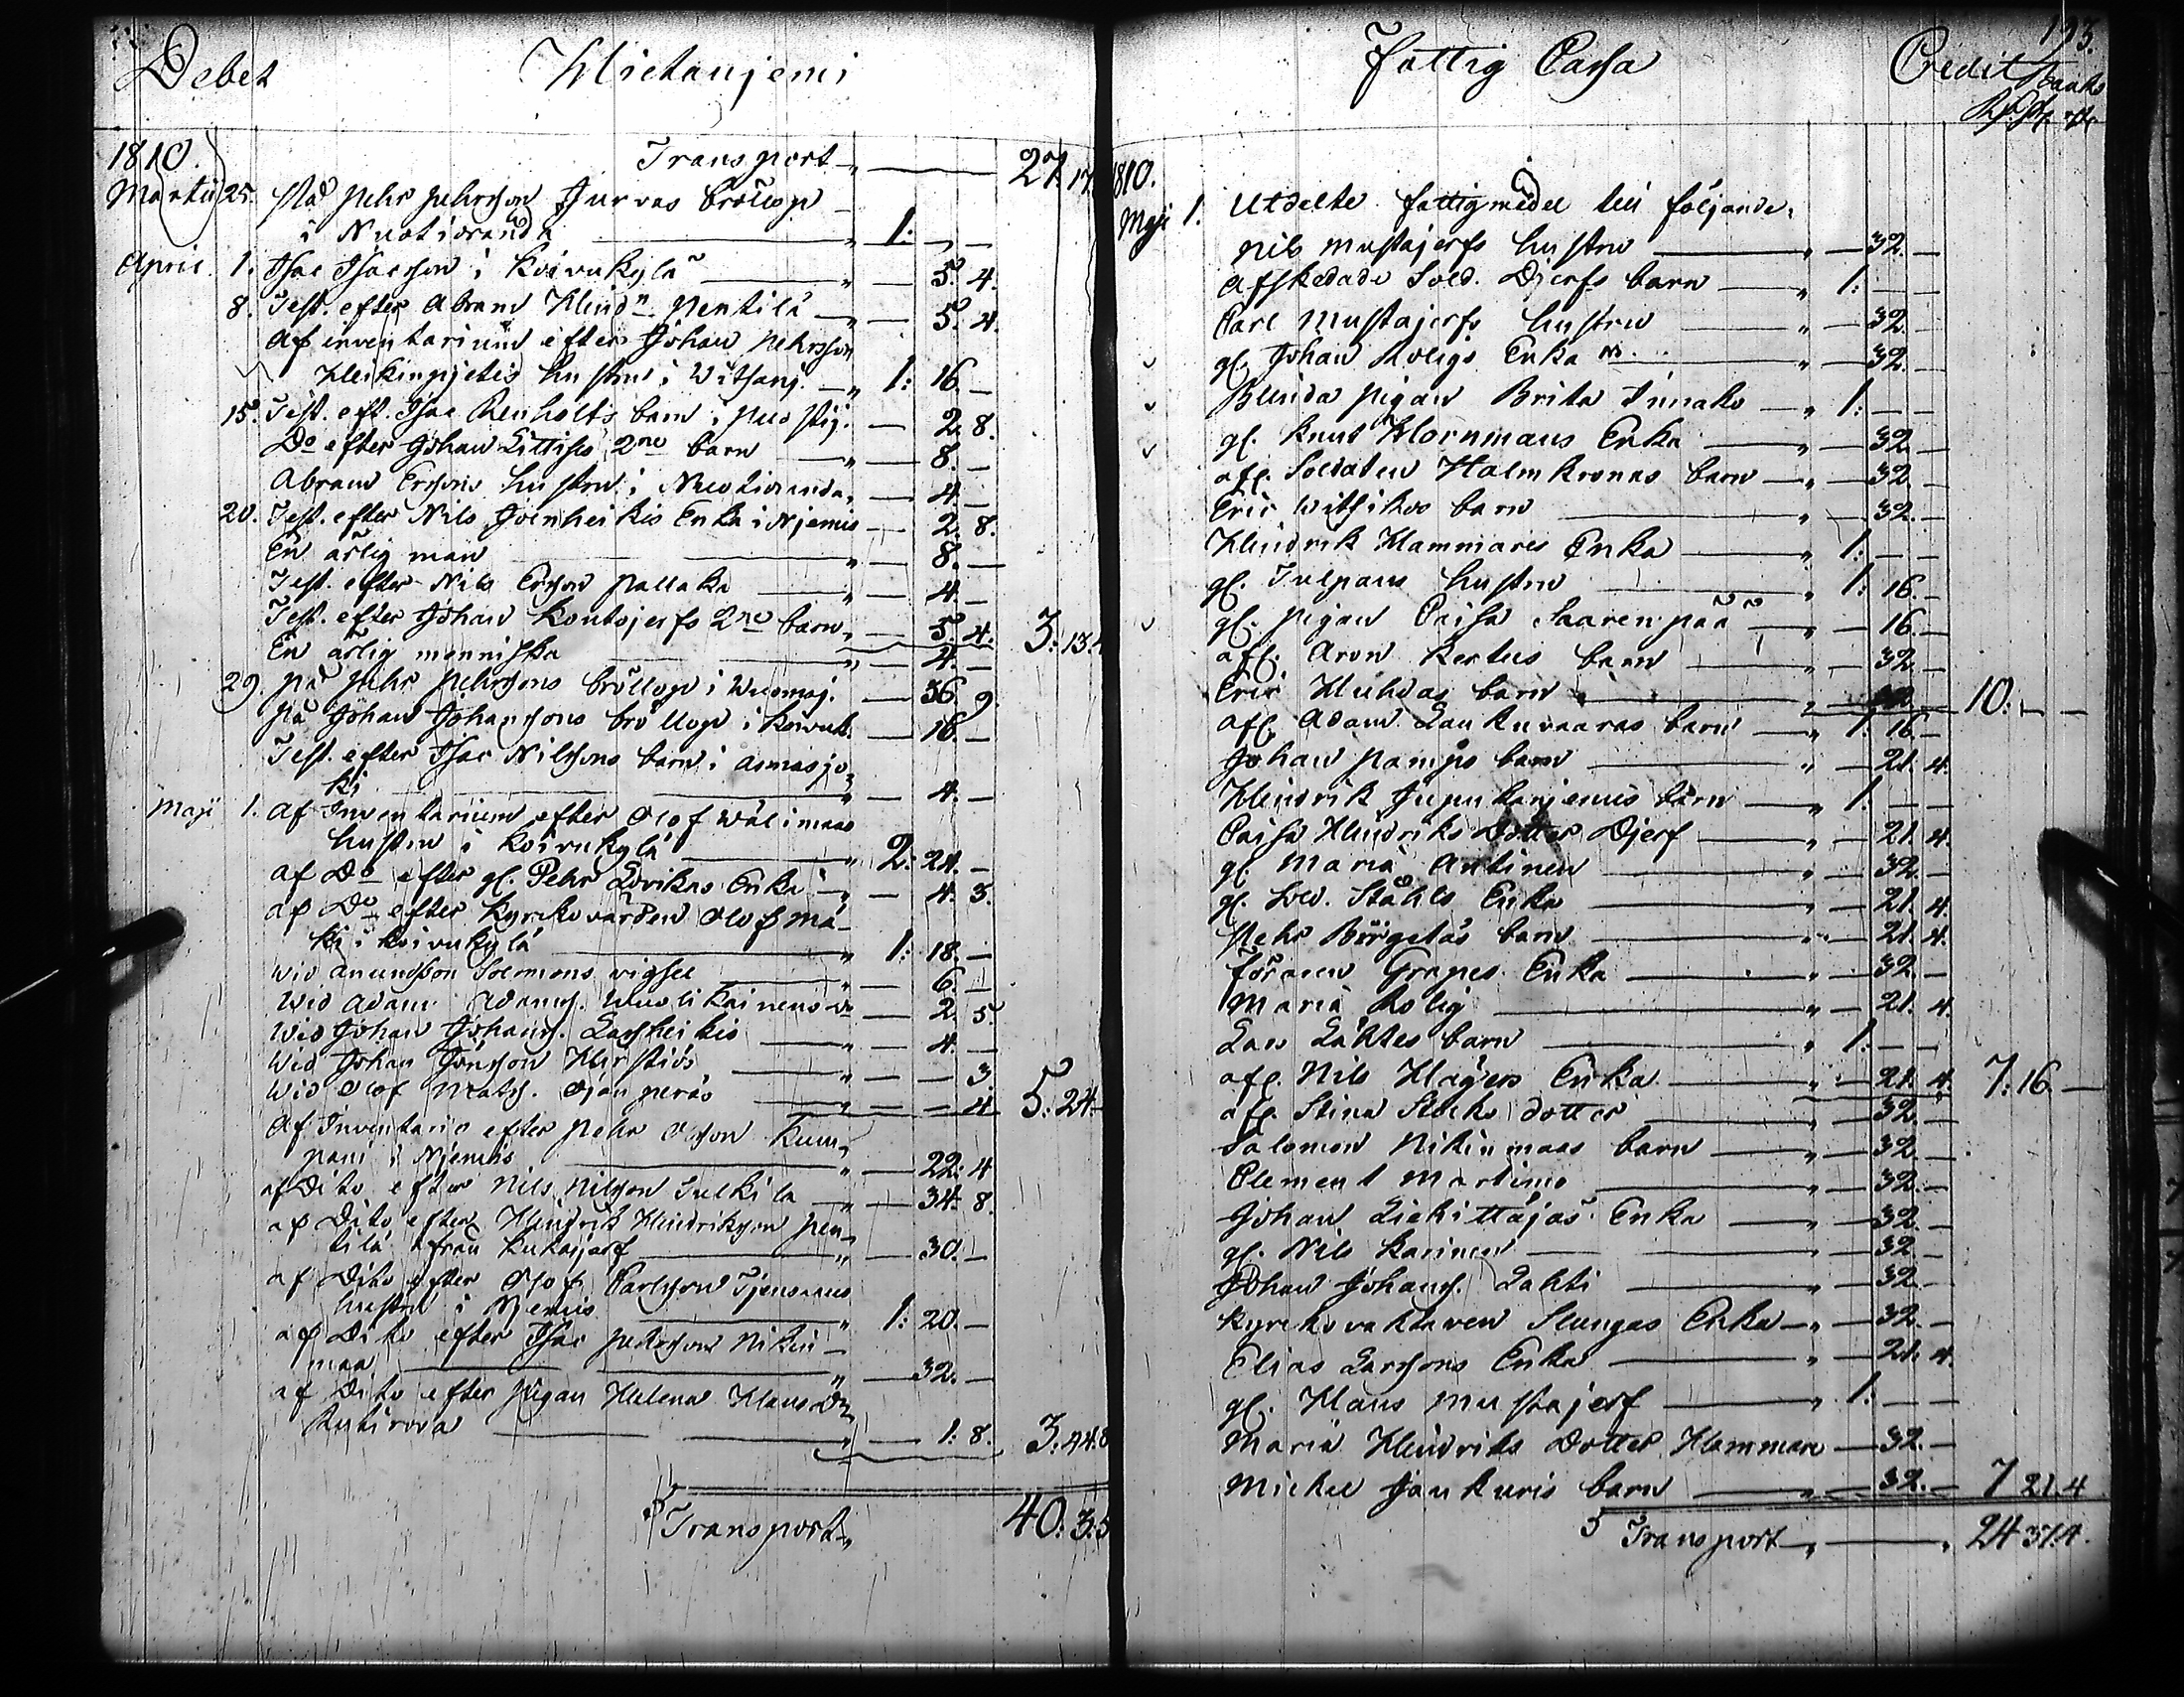 Debet Hietaniemi
1810. Transport 27: 17.
Martii 25. På Pehr Pehrsson Jurvas bröllop
i Nuotioranda 1: — —
April 1. Isac Isacsson i Koivukylä — 5. 4.
8. Test. efter Abram Hindn. Pentilä — 5. 4.
Af inventarium efter Johan Pehrsson
Heikinpietis hustru i Witsanj. 1: 16. —
15. Test. eft. Isac Renholts barn i — 2. 8.
Do efter Johan 2ne barn — 8. —
Abram Erssons hustru i Nuotioranda — 4. —
20. Test. efter Nils Joenheikis Enka i Niemis — 2. 8.
En ärlig man — 8. —
Test. efter Nils Ersson Pallaka — 4. —
Test. efter Johan Kontojerfs 2ne barn — 5. 4. 3: 13. 4
En ärlig menniska — 4. —
29. På Pehr Pehrssons bröllop i Wuomaj. — 36. 9.
På Johan Johanssons bröllop i Koivuk. — 16. —
Test. efter Isac Nilssons barn i Armasjo-
ki — 4. —
Maji 1. Af Inventarium efter Olof Wälimaas
hustru i Koivukylä 2: 24. —
af Do efter gl. Pehr Enka — 4. 3.
af Do efter Kyrkovärden Olof Mä-
ki i Koivukylä 1: 18. —
Wid Amundsson Solomons vigsel — 6. —
Wid Adam Adams. — 2. 5.
Wid Johan Johans. Lassheikis — 4. —
Wid Johan Jönsson — — 3.
Wid Olof Mats. Ojanperäs — — 4. 5: 24. —
Af Inventario efter Pehr Olsson Kum-
pani i Niemis — 22: 4
af Dito efter Nils Nilsson — 34. 8.
af Dito efter Hindrik Hindriksson Pen-
tilä ifrån Kukasjärf — 30. —
af Dito efter Olof Carlsson
hustru i Niemis 1: 20. —
af Dito efter Isac Pehrsson Nikin-
maa — 32. —
af Dito efter Pigan Helena Hans Dr
Kutirova — 1. 8. 3: 44. 8
Transport 40: 3: 5
Fattig Cassa Credit 193.
Banko
1810.
Maji 1. Utdelte fattigmedel till följande:
Nils Mustajerfs hustru — 32. —
Afskedade Sold. Djerfs barn 1: — —
Carl Mustajerfs hustru — 32. —
gl. Johan Roligs Enka — 32. —
Blinda Pigan Brita 1: — —
gl. Knut Hornmans Enka — 32. —
afl. Soldaten Halmkronas barn — 32. —
Eric Witsikos barn — 32. —
Hindrik Hammares Enka 1: — —
gl. Tulpans hustru 1: 16. —
gl. Pigan Caisa Saarenpää — 16. —
afl. Aron Kertus barn — 32. —
Eric Huhdas barn 10: — —
afl. Adam Laukuvaaras barn 1: 16. —
Johan Pamps barn — 21. 4.
Hindrik barn 1: — —
Caisa Hindriks Dotter Djerf — 21. 4.
gl. Maria Antinen — 32. —
gl. Sold. Ståhls Enka — 21. 4.
Pehr barn — 21. 4.
Föraren Grapes Enka — 32. —
Maria Rolig — 21. 4.
Lars Lahtes barn 1: — —
afl. Nils Hägers Enka — 21. 4. 7: 16. —
afl. Stina Stocks dotter — 32. —
Salomon Nikinmaas barn — 32. —
Clement Martimo — 32. —
Johan Liehittäjäs Enka — 32. —
gl. Nils Karinen — 32. —
Johan Johans. Lahti — 32. —
Kyrkovaktaren Stungas Enka — 32. —
Elias Larssons Enka — 21. 4.
gl. Hans Mustajerf 1: — —
Maria Hindriks Dotter Hammare — 32. —
Mickel Jankuris barn — 32. — 7 21. 4
Transport 24 37. 4.